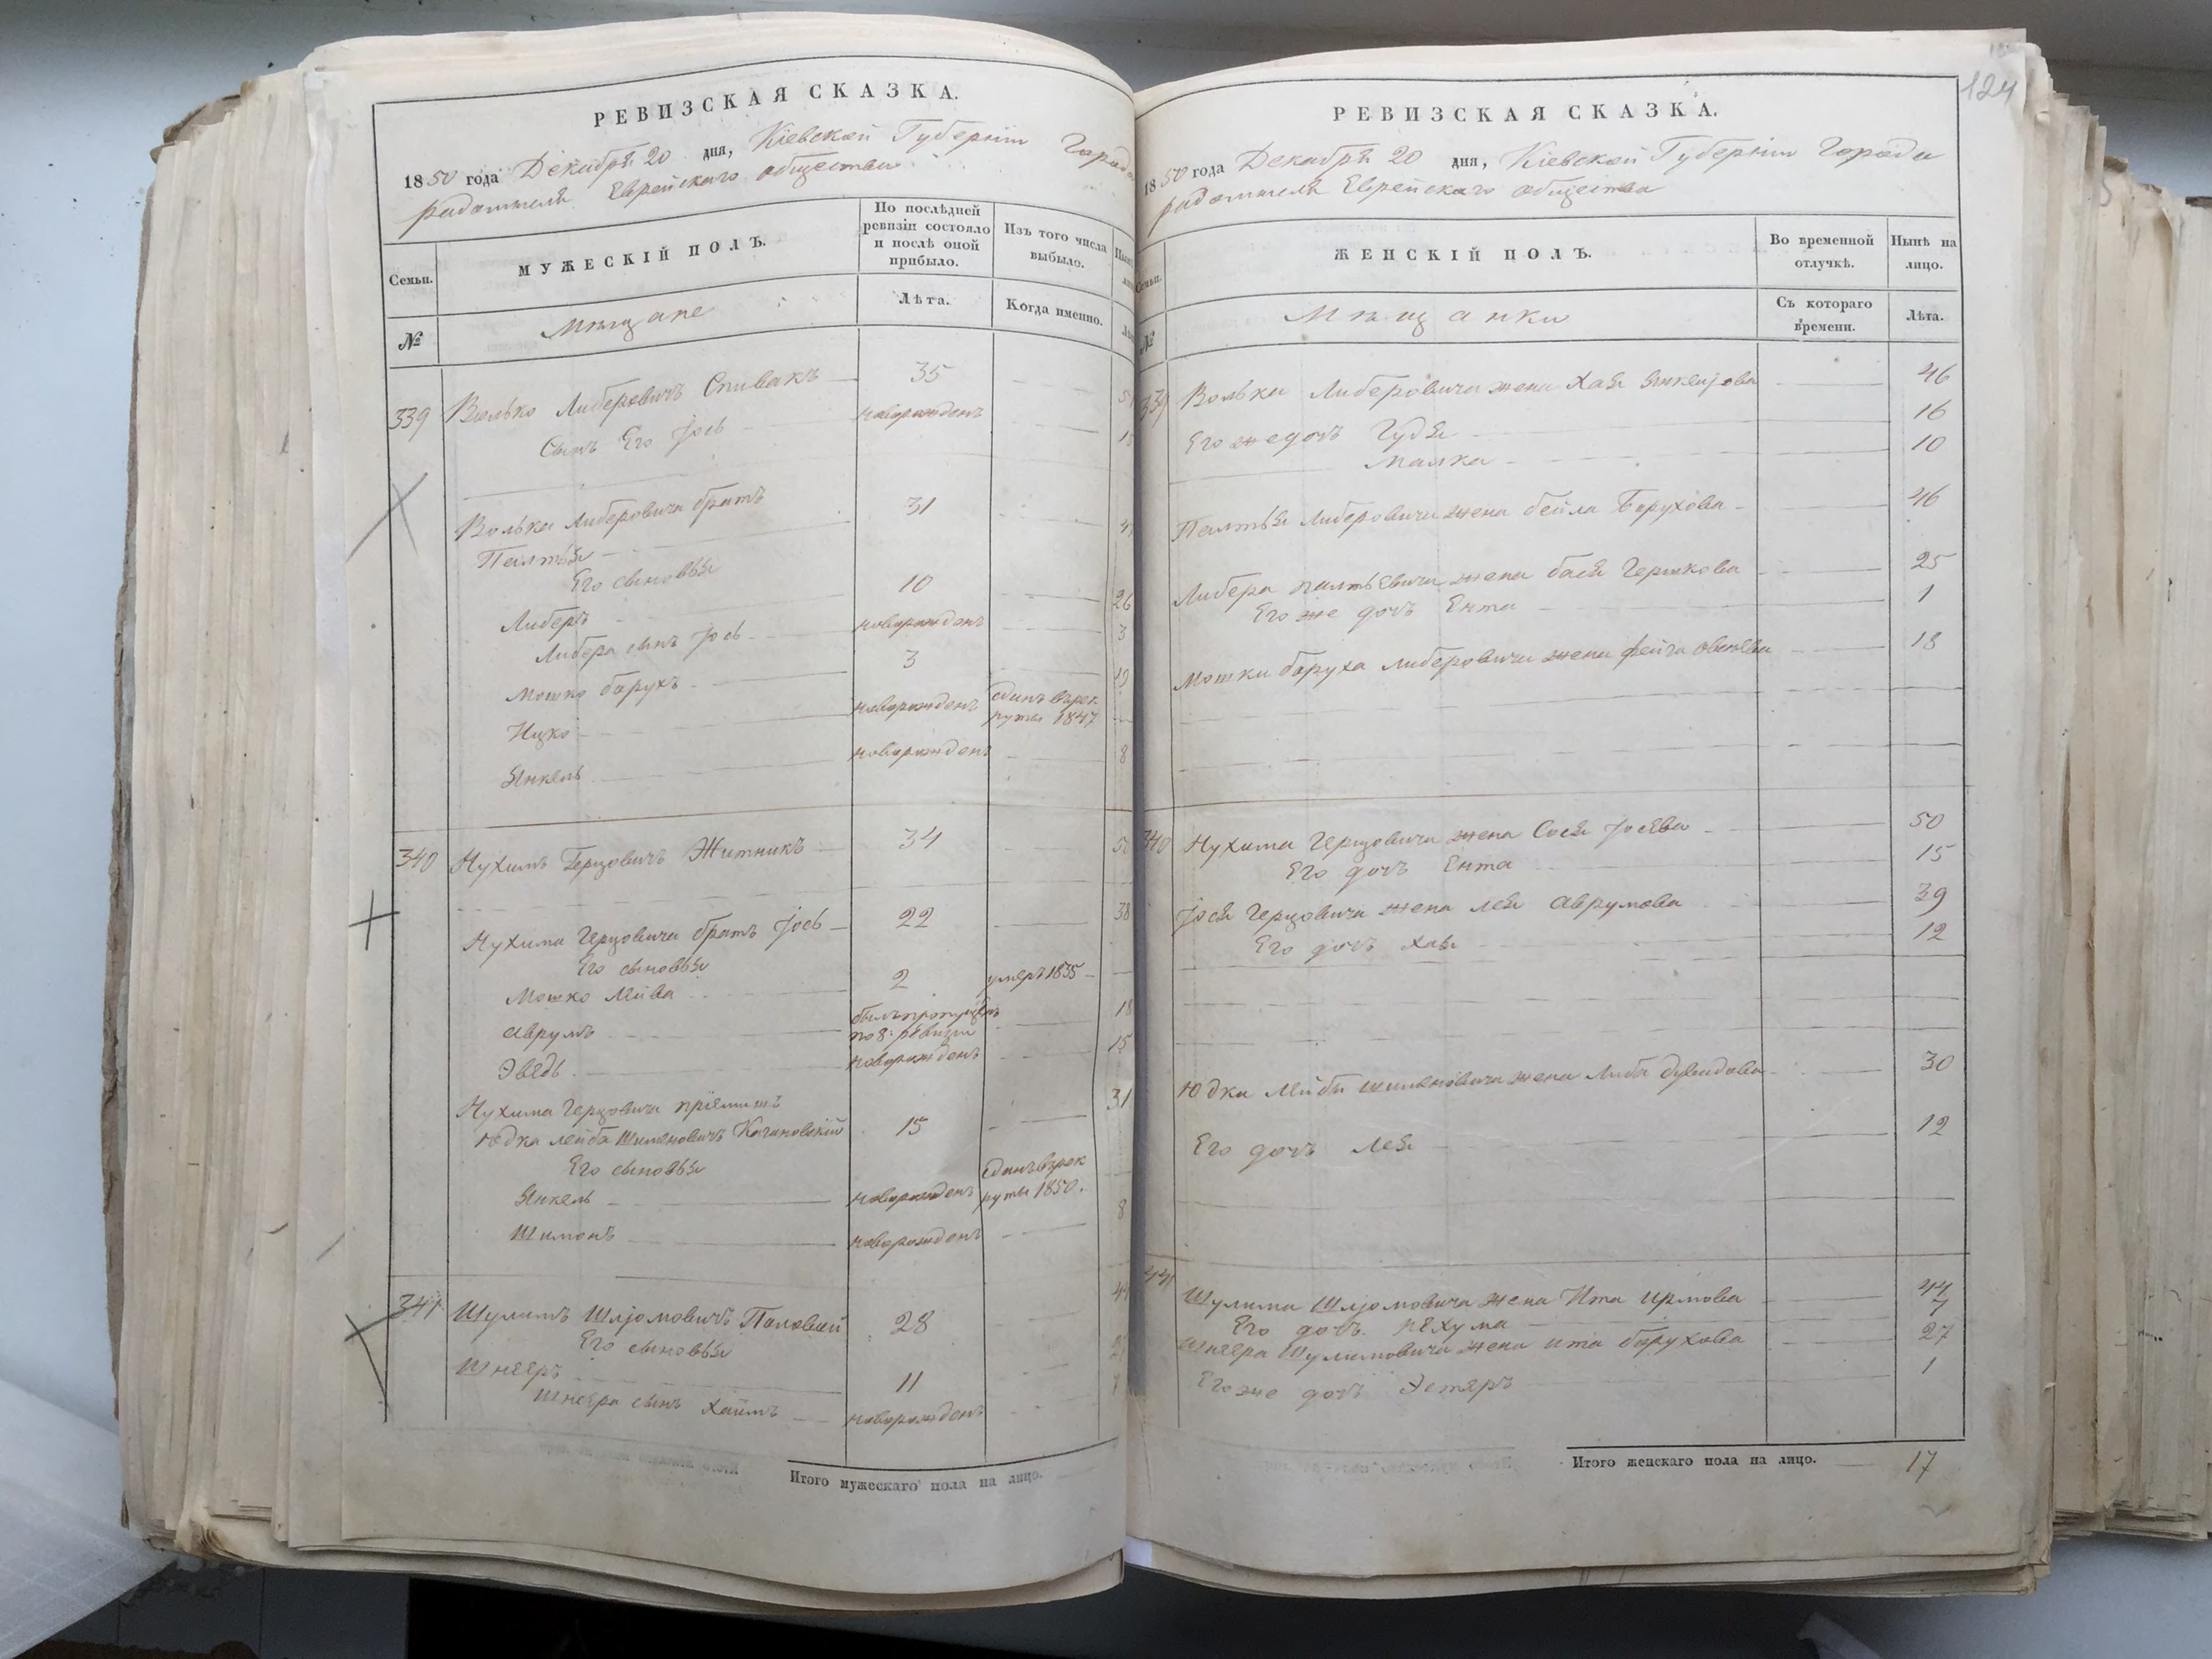 РЕВИЗСКАЯ СКАЗКА.
1850 года Декабря 20 дня, Кіевской Губерніи Города
радомысля Еврейскаго общества
Семьи.
МУЖЕСКІЙ ПОЛЪ.
По послѣдней ревизіи состояло и послѣ оной прибыло.
Изъ того числа выбыло.
№
Мѣщане
Лѣта.
Когда именно.
339 Волько Либеровичъ Спивакъ 35
Сынъ Его Іось новорожденъ
Волька Либеровича братъ 31
Палтья
Его сыновья
Либеръ 10 26
Либера сынъ Іось новорожденъ 3
Мошко борухъ 3 19
Ицко новорожденъ сданъ въ рек
руты 1847
Янкель новорожденъ 8
340 Нухимъ Герцовичъ Житникъ 34 50
Нухима Герцовича братъ Іось 22 38
Его сыновья
Мошко Лейба 2 умеръ 1835
аврумъ былъ пропущенъ 18
по 8: ревизіи
Эведь новорожденъ 15
Нухима Герцовича пріемышъ 31
Юдка лейба Шимановичъ 15
Его сыновья
Янкель новорожденъ сданъ въ рек
руты 1850.
Шимонъ новорожденъ 8
341 Шулимъ Шліомовичъ 28
Его сыновья
Шнееръ 11
Шнеера сынъ Хаимъ новорожденъ
Итого мужескаго пола на лицо.
124
РЕВИЗСКАЯ СКАЗКА.
1850 года Декабря 20 дня, Кіевской Губерніи Города
радомысля Еврейскаго общества
Семьи.
ЖЕНСКІЙ ПОЛЪ.
Во временной отлучкѣ.
Нынѣ на лицо.
№
Мѣщанки
Съ котораго времени.
Лѣта.
339 Волька Либеровича жена Хая Янкелова 46
Его же дочь Гудя 16
Малка 10
Палтья Либеровича жена бейла Борухова 46
Либера палтьевича жена бася Гершкова 25
Его же дочь Ента 1
Мошки боруха Либеровича жена фейга 18
340 Нухима Герцовича жена Сося Іосева 50
Его дочь Ента 15
Іося Герцовича жена лея аврумова 39
Его дочь хая 12
Юдки Лейбы Шимановича жена Либа 30
Его дочь Лея 12
341 Шулима Шліомовича жена Ита 44
Его дочь Нехума 7
Шнеера Шулимовича жена ита борухова 27
Его же дочь Эстеръ 1
Итого женскаго пола на лицо. 17